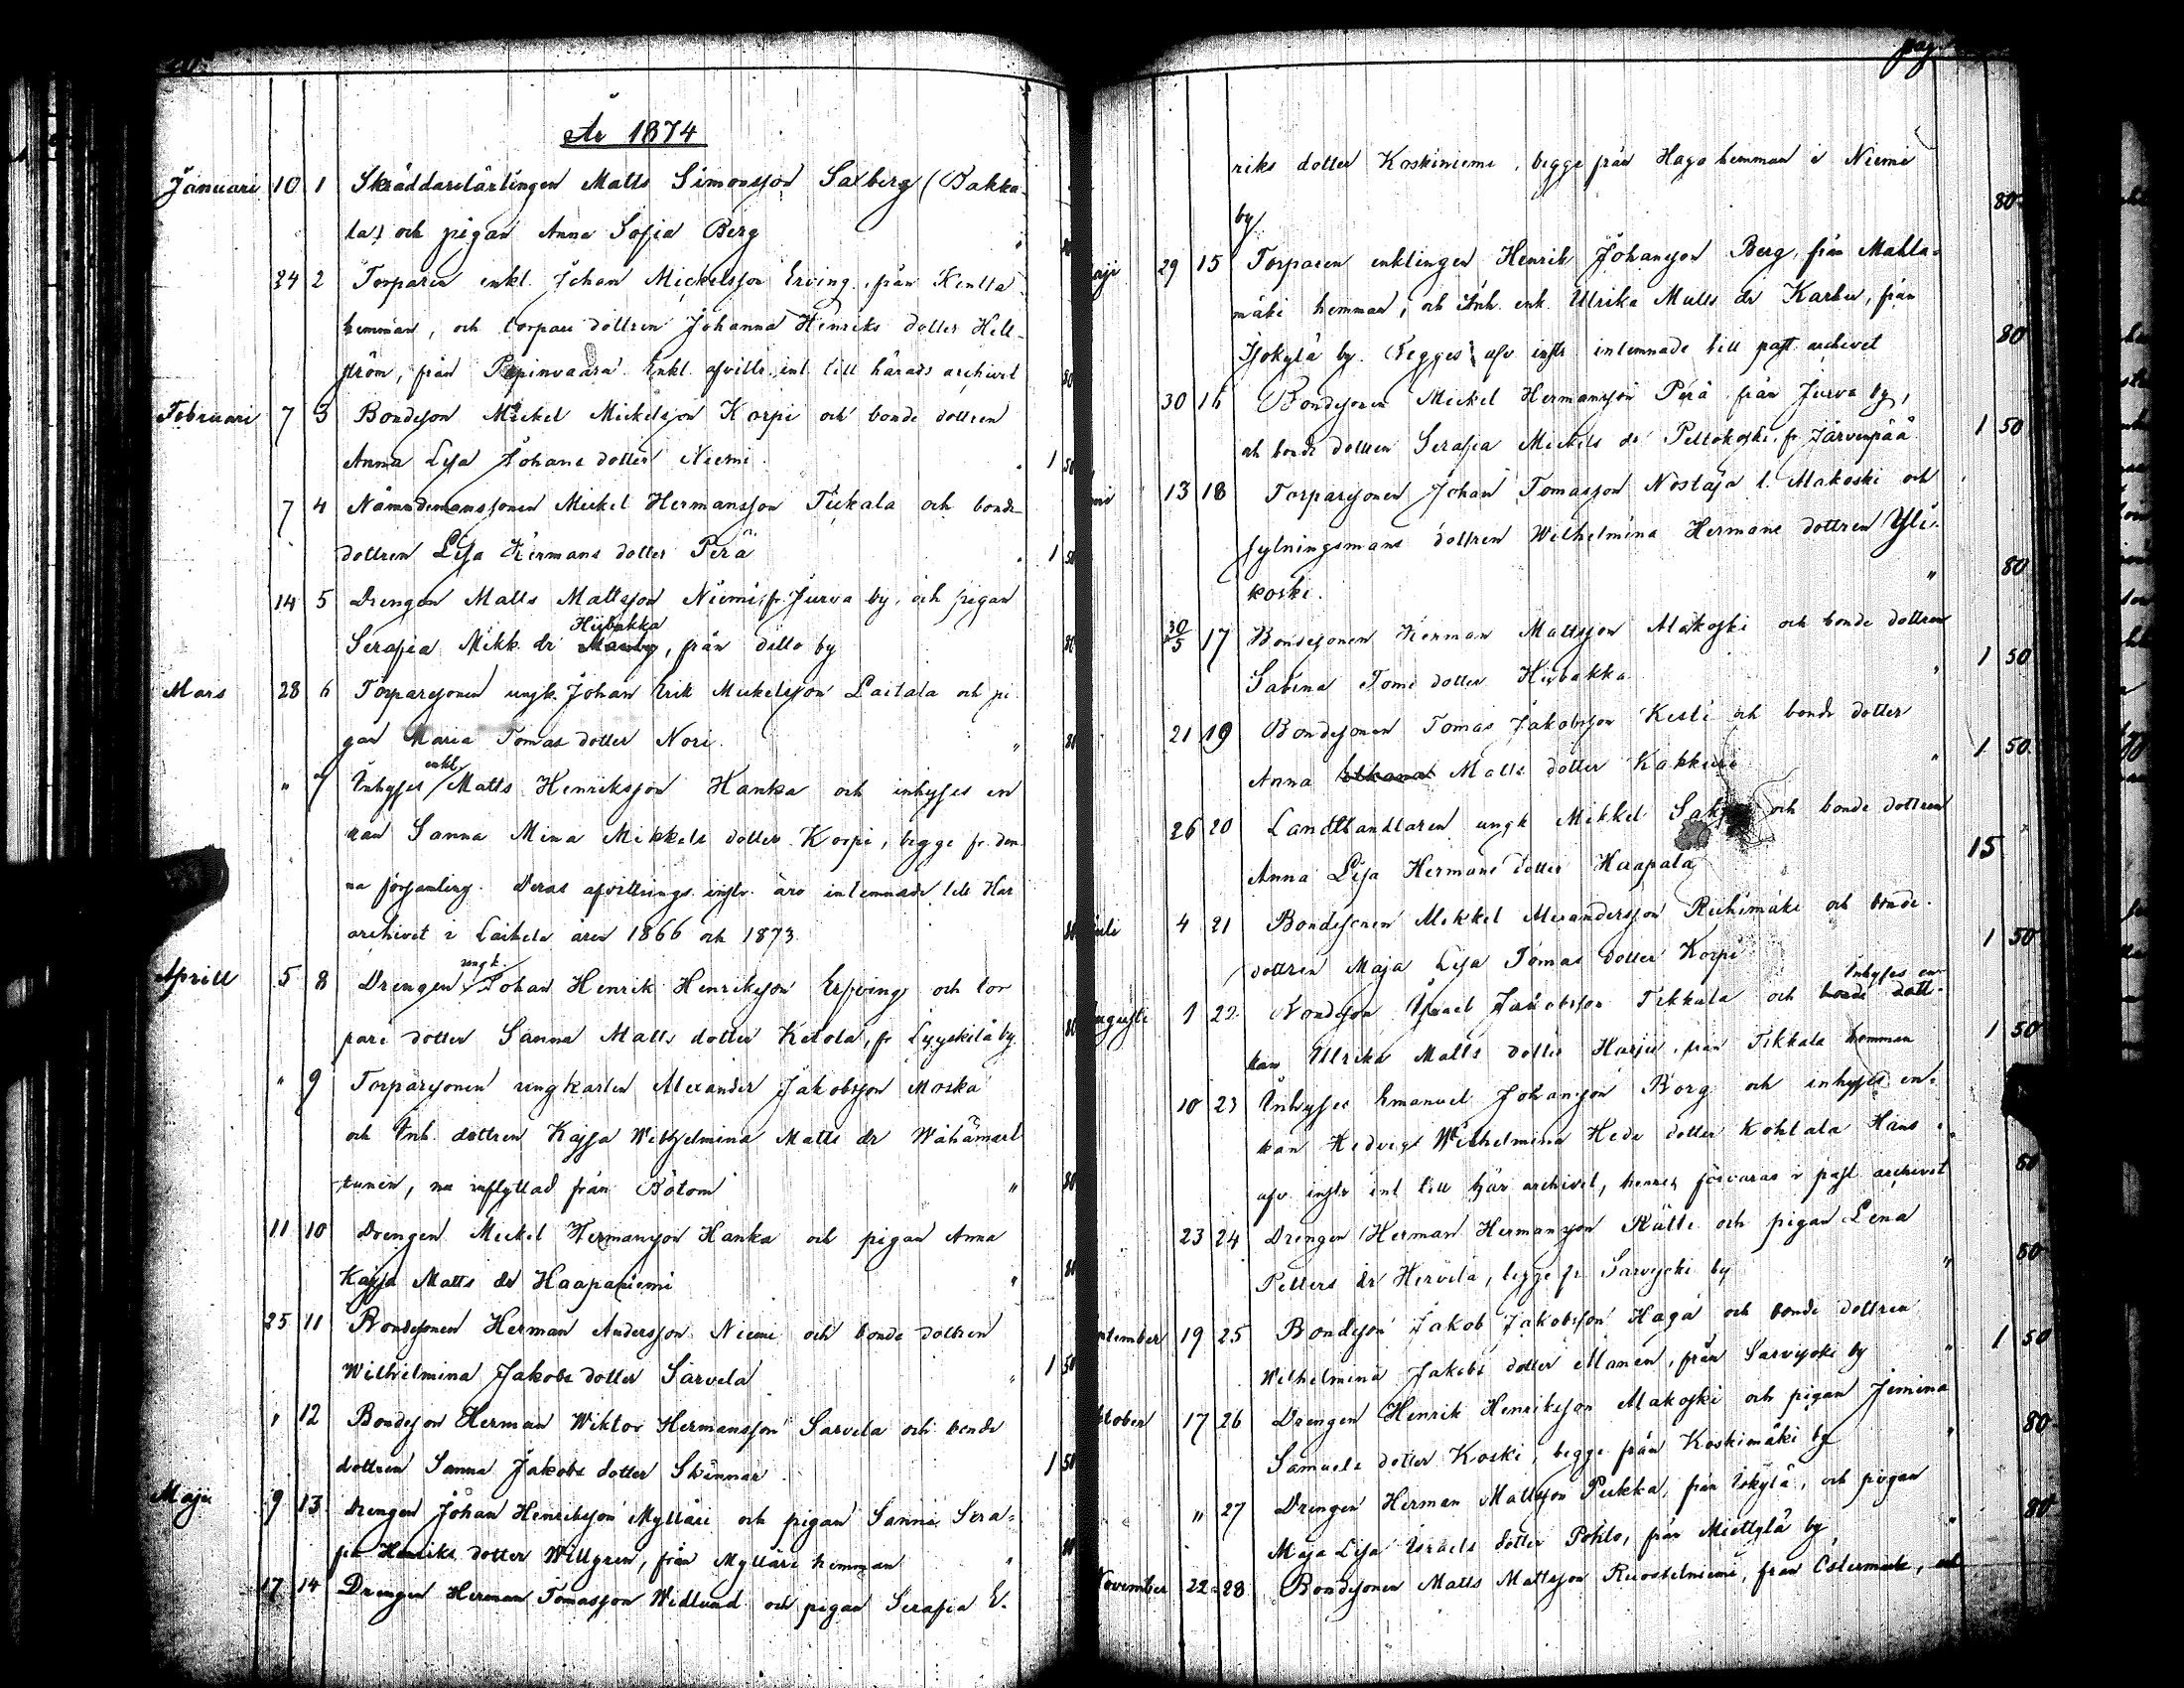 År 1874
Januari 10 1 Skräddarelärlingen Matts Simonsson Saxberg (Bakka-
la) och pigan Anna Sofia Berg "
24 2 Torparen enkl. Johan Mickelsson Erving, från Kentta
hemman, och torpare dottren Johanna Henriks dotter Hell-
ström, från Enkl. afvittr. inl. till härads archivet 80
Februari 7 3 Bondeson Mickel Mickelsson Korpi och bonde dottren
Anna Lisa Johans dotter Niemi " 1 50
7 4 Nämndemanssonen Mickel Hermansson Tikkala och bonde
dottren Lisa Hermans dotter Perä " 1 50
14 5 Drengen Matts Mattsson Niemi, fr. Jurva by, och pigan
Hiibakka
Serafia Mikk. dr , från ditto by 80
Mars 28 6 Torparsonen ungk. Johan Erik Mickelsson Laitala och pi
gan Maria Tomas dotter Nori " 80
enkl.
" 7 Inhyses Matts Henriksson Hanka och inhyses en
kan Sanna Mina Mikkels dotter Korpi, begge fr. den
na församling. Deras afvittrings instr. äro inlemnade till Här
archivet i Laihela åren 1866 och 1873. 80
ungk.
Aprill 5 8 Drengen Johan Henrik Henriksson Erfving och tor
pare dotter Sanna Matts dotter Ketola, fr Lyyskilä by 80
" 9 Torparsonen ungkarlen Alexander Jakobsson Moska
och Inh. dottren Kajsa Wilhelmina Matts dr Wähämart
tunen, inflyttad från Bötom " 80
11 10 Drengen Mickel Hermansson Hanka och pigan Anna
Kajsa Matts dr Haapaniemi " 80
25 11 Bondesonen Herman Andersson Niemi och bonde dottren
Wilhelmina Jakobs dotter Sarvela " 1 50
" 12 Bondeson Herman Wiktor Hermansson Sarvela och bonde
dottren Sanna Jakobs dotter Skinnar 1 50
Maji 9 13 Drengen Johan Henriksson Mylläri och pigan Sanna Sera-
fia Henriks dotter Willgren, från Mylläri hemman " 80
17 14 Drengen Herman Tomasson Widlund och pigan Serafia E.
riks dotter Koskiniemi, begge från Haga hemman i Niemi
by 80
Maji 29 15 Torparen enklingen Henrik Johansson Berg, från Mahla-
mäki hemman, och Inh. enk. Ulrika Matts dr Karhu, från
Isokylä by. (Begges afv. instr. inlemnade till past. archivet 80
30 16 Bondesonen Mickel Hermansson Perä från Jurva by,
och bonde dottren Serafia Mickels dr Peltokoski, fr Järvenpää 1 50
Juni 13 18 Torparsonen Johan Tomasson Nostaja l. Alakoski och
sytningsmans dottren Wilhelmina Hermans dottren Yli-
koski. " 80
30/5 17 Bondesonen Herman Mattsson Alakoski och bonde dottren
Sabina Tomi dotter Hiibakka " 1 50
21 19 Bondesonen Tomas Jakobsson Kesti och bonde dotter
Anna Matts dotter Kakkuri " 1 50
26 20 Landthandlaren ungk Mikkel och bonde dottren
Anna Lisa Hermans dotter Haapala 15
Juli 4 21 Bondesonen Mikkel Alexandersson Riihimäki och bonde-
dottren Maja Lisa Tomas dotter Korpi 1 50
Inhyses en
Augusti 1 22 Bondeson Israel Jakobsson Tikkala och bonde dott-
kan Ullrika Matts dotter Harju, från Tikkala hemman 1 50
10 23 Inhyses Emanuel Johansson Borg och inhyses en-
kan Hedvig Wilhelmina Hede dotter Kohtala Hans
afv. instr inl till här archivet, hennes förvaras i past archivet 80
23 24 Drengen Herman Hermansson Rätti och pigan Lena
Petters dr Hervela, begge fr Sarvijoki by " 80
September 19 25 Bondeson Jakob Jakobsson Haga och bonde dottren
Wilhelmina Jakobs dotter Manen, från Sarvijoki by " 1 50
Oktober 17 26 Drengen Henrik Henriksson Alakoski och pigan Jemina
Samuels dotter Koski, begge från Koskimäki by " 80
" 27 Drengen Herman Mattsson Pukka, från Iskylä, och pigan
Maja Lisa Israels dotter Pohto, från Miettylä by " 80
November 22 28 Bondesonen Matts Mattsson Ruostelniemi, från Östermark, och